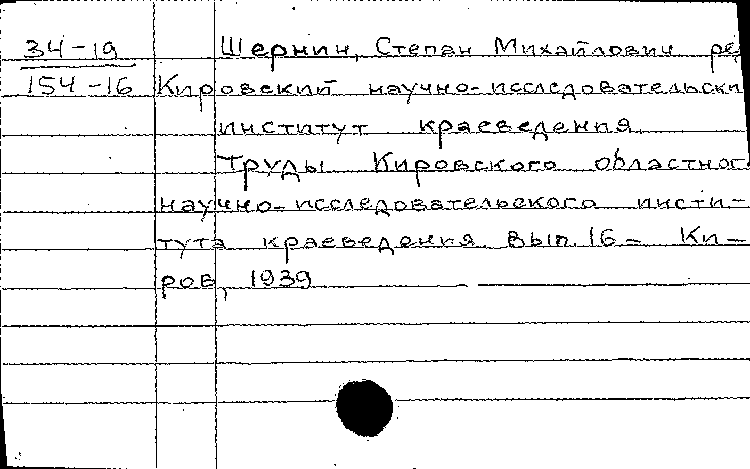 34-19 Шернин, Степан Михайлович ре
154-16 Кировский научно-исследовательски
институт краеведения
Труды Кировского областног
научно-исследовательского инсти-
тута краеведения. Вып. 16 - Ки-
ров, 1939